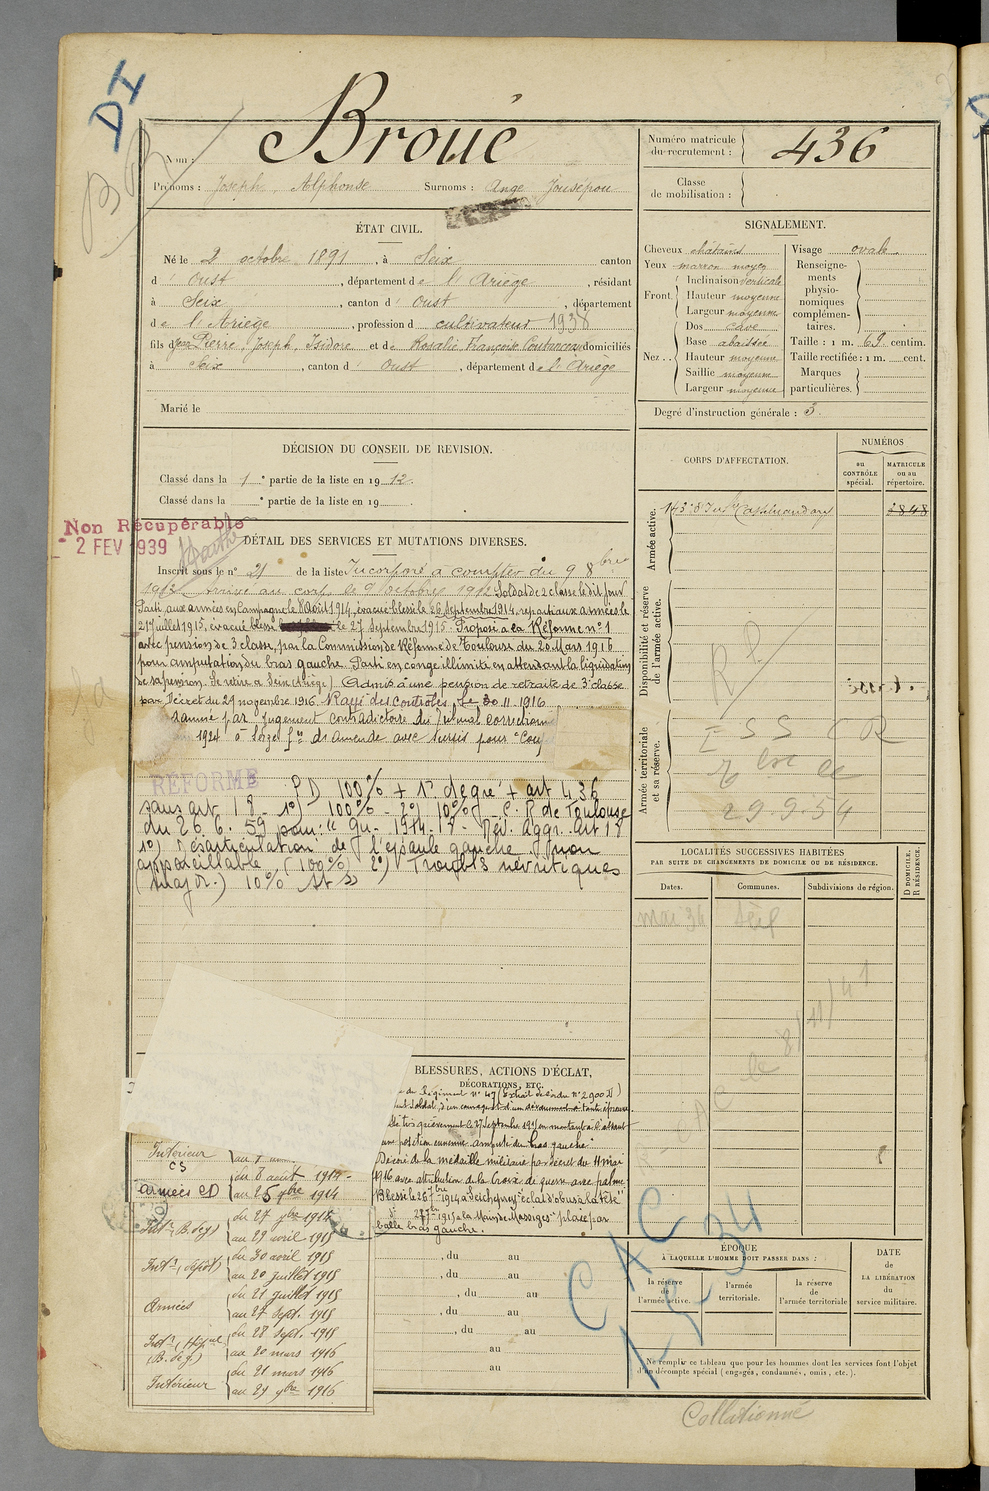 DI
Nom :
Broué
Numéro matricule
du recrutement :
436
Prénoms : Joseph, Alphonse Surnoms : Ange Jousepou
Classe
de mobilisation :
ÉTAT CIVIL.
Né le 2 octobre 1891, à Seix canton
d'Oust, département de l'Ariège, résidant
à Seix, canton d'Oust, département
de l'Ariège, profession d cultivateur 1938
fils de Jean Pierre, Joseph, Isidore et de Rosalie Françoise domiciliés
à Seix, canton d'Oust, département de l'Ariège
Marié le
SIGNALEMENT.
Cheveux châtains
Yeux marron moyen
Front. Inclinaison verticale
Hauteur moyenne
Largeur moyenne
Nez .. Dos cave
Base abaissée
Hauteur moyenne
Saillie moyenne
Largeur moyenne
Visage ovale
Renseigne-
ments
physio-
nomiques
complémen-
taires.
Taille : 1 m. 69 centim.
Taille rectifiée : 1 m. cent.
Marques
particulières.
Degré d'instruction générale : 3.
DÉCISION DU CONSEIL DE REVISION.
Classé dans la 1e partie de la liste en 1912.
Classé dans la e partie de la liste en 19
Non Récupérable
2 FEV 1939
DÉTAIL DES SERVICES ET MUTATIONS DIVERSES.
Inscrit sous le n° 21 de la liste Incorporé à compter du 9 8bre
1912 arrivé au corps le 9 octobre 1912 Soldat de 2 classe le dit jour
Parti aux armées en campagne le 8 Août 1914, évacué blessé le 26 Septembre 1914, reparti aux armées le
21 juillet 1915, évacué blessé le 27 Septembre 1915. Proposé à la Réforme n° 1
avec pension de 3 classe, par la Commission de Réforme de Toulouse du 20 Mars 1916
pour amputation du bras gauche. Parti en congé illimité en attendant la liquidation
de sa pension. Se retire à Seix (Ariège) Admis à une pension de retraite de 3e classe
par Décret du 29 novembre 1916. Rayé des contrôles le 30 11 1916
damné par jugement contradictoire du tribunal correctionn
1924 à Seize fs d'amende avec sursis pour "Coup
RÉFORMÉ
PD 100% + 1° degré + art 436
sans art 18. 1°) 100% - 2°) 10% - C. R de Toulouse
du 26. 6. 59 pour : " Gu. 1914-18 - Rév. Aggr. Art 18
1°) Désarticulation de l'épaule gauche non
appareillable (100%) 2°) Troubles névritiques
(major.) 10%
CORPS D'AFFECTATION.
NUMÉROS
au
CONTRÔLE
spécial.
MATRICULE
ou au
répertoire.
Armée active.
143e d'Inf. Castelnaudary
2848
Disponibilité et réserve
de l'armée active.
Armée territoriale
et sa réserve.
29.9.54
LOCALITÉS SUCCESSIVES HABITÉES
PAR SUITE DE CHANGEMENTS DE DOMICILE OU DE RÉSIDENCE.
Dates.
Communes.
Subdivisions de région.
D DOMICILE.
R RÉSIDENCE.
mai 34
CAC le 8/11/41
BLESSURES, ACTIONS D'ÉCLAT,
DÉCORATIONS, ETC.
du Régiment n° 47 (Extrait de l'ordre n° 2900 D)
Soldat, d'un courage et d'un dévouement à toute épreuve
très grièvement le 27 Septembre 1915 en montant à l'assaut
une position ennemie amputé du bras gauche"
Décoré de la médaille militaire par décret du 11 mai
1916 avec attribution de la Croix de guerre avec palme
Blessé le 26 7bre 1914 à Seicheprey "éclat d'obus à la tête"
d° 27 7bre 1915 à la Main de Massiges "plaie par
balle bras gauche.
Intérieur
CS
Armées CD
du 8 août 1914
au 26 7bre 1914
Int.r (B. de g)
du 27 7bre 1914
au 29 avril 1915
Int.r (dépôt)
du 30 avril 1915
au 20 juillet 1915
Armées
du 21 juillet 1915
au 27 sept. 1915
Int.r (Hôpital
(B. de g)
du 28 sept. 1915
au 20 mars 1916
Intérieur
du 21 mars 1916
au 29 9bre 1916
, du au
, du au
, du au
, du au
, du au
au
au
CAC
1-5-34
ÉPOQUE
À LAQUELLE L'HOMME DOIT PASSER DANS :
la réserve
de
l'armée active.
l'armée
territoriale.
la réserve
de
l'armée territoriale
DATE
de
LA LIBÉRATION
du
service militaire.
Ne remplir ce tableau que pour les hommes dont les services font l'objet
d'un décompte spécial (engagés, condamnés, omis, etc.).
Collationné